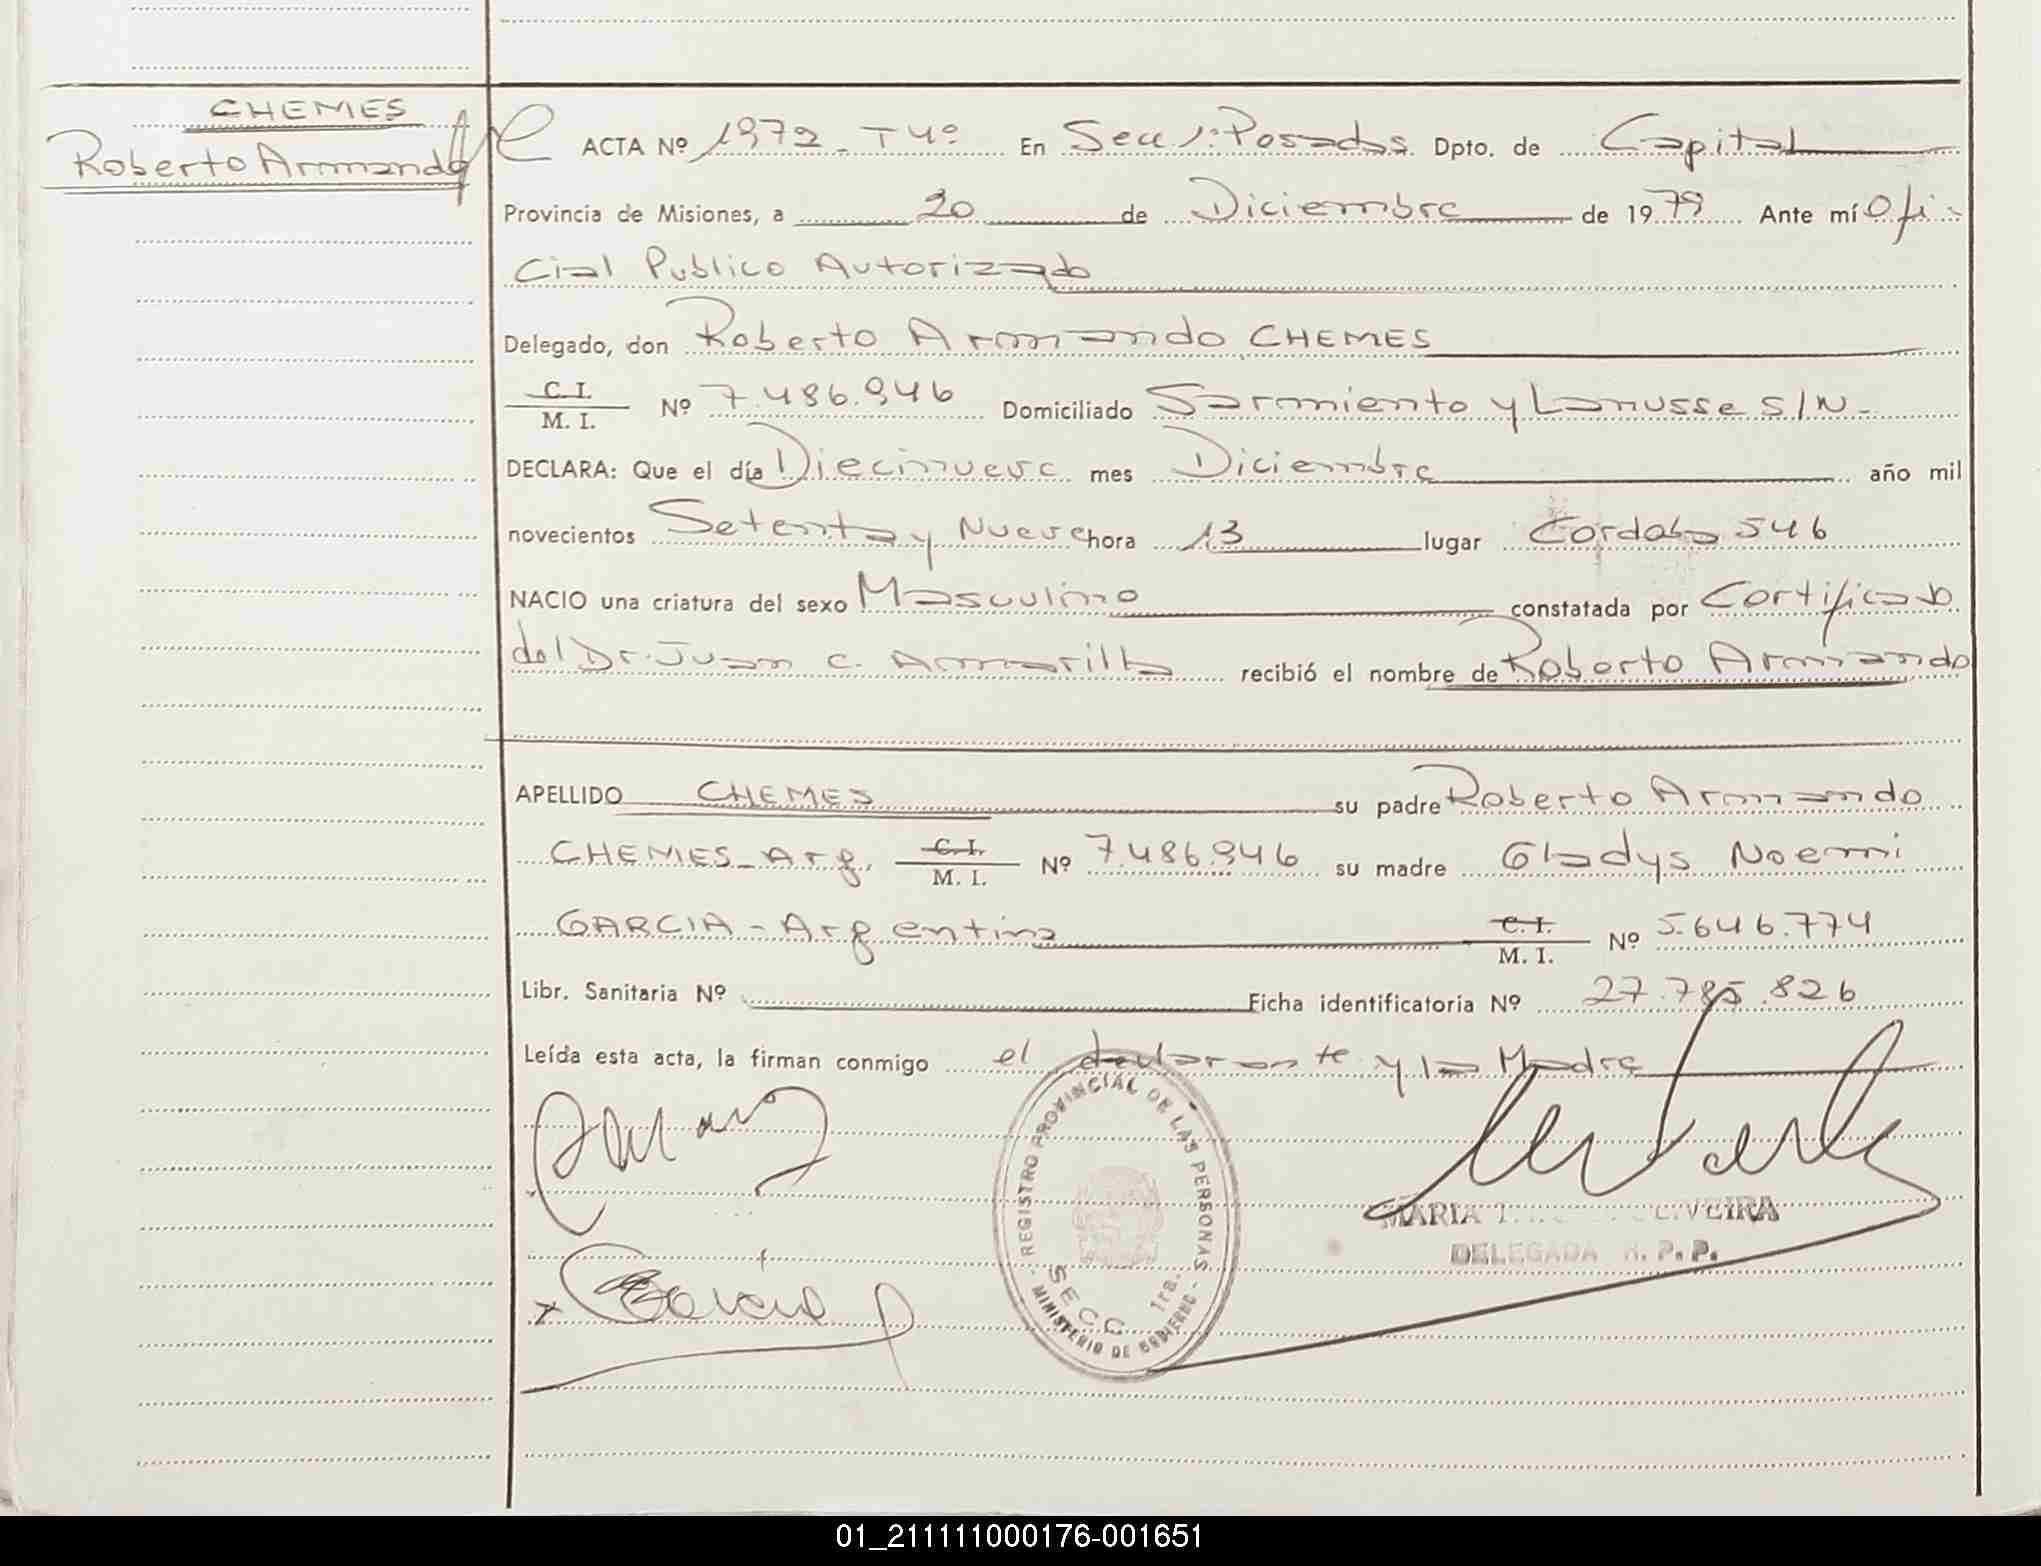 CHEMES
Roberto Armando
ACTA Nº 1972 - T 4º En Secc 1º Posadas Dpto. de Capital
Provincia de Misiones, a 20 de Diciembre de 1979 Ante mí Ofi-
cial Publico Autorizado
Delegado, don Roberto Armando CHEMES
C. I.
M. I. Nº 7.486.946 Domiciliado Sarmiento y Lanusse S/N.-
DECLARA: Que el día Diecinueve mes Diciembre año mil
novecientos Setenta y Nueve hora 13 lugar Cordoba 546
NACIO una criatura del sexo Masculino constatada por Certificado
del Dr. Juan C. Amarilla recibió el nombre de Roberto Armando
APELLIDO CHEMES su padre Roberto Armando
CHEMES - Arg. C. I. M. I. Nº 7.486.946 su madre Gladys Noemi
GARCIA - Argentina C. I. M. I. Nº 5.646.774
Libr. Sanitaria Nº Ficha identificatoria Nº 27.785.826
Leída esta acta, la firman conmigo el declarante y la Madre
REGISTRO PROVINCIAL DE LAS PERSONAS
SECC. 1ra.
- MINISTERIO DE GOBIERNO -
MARIA OLIVEIRA
DELEGADA R. P. P.
01_211111000176-001651